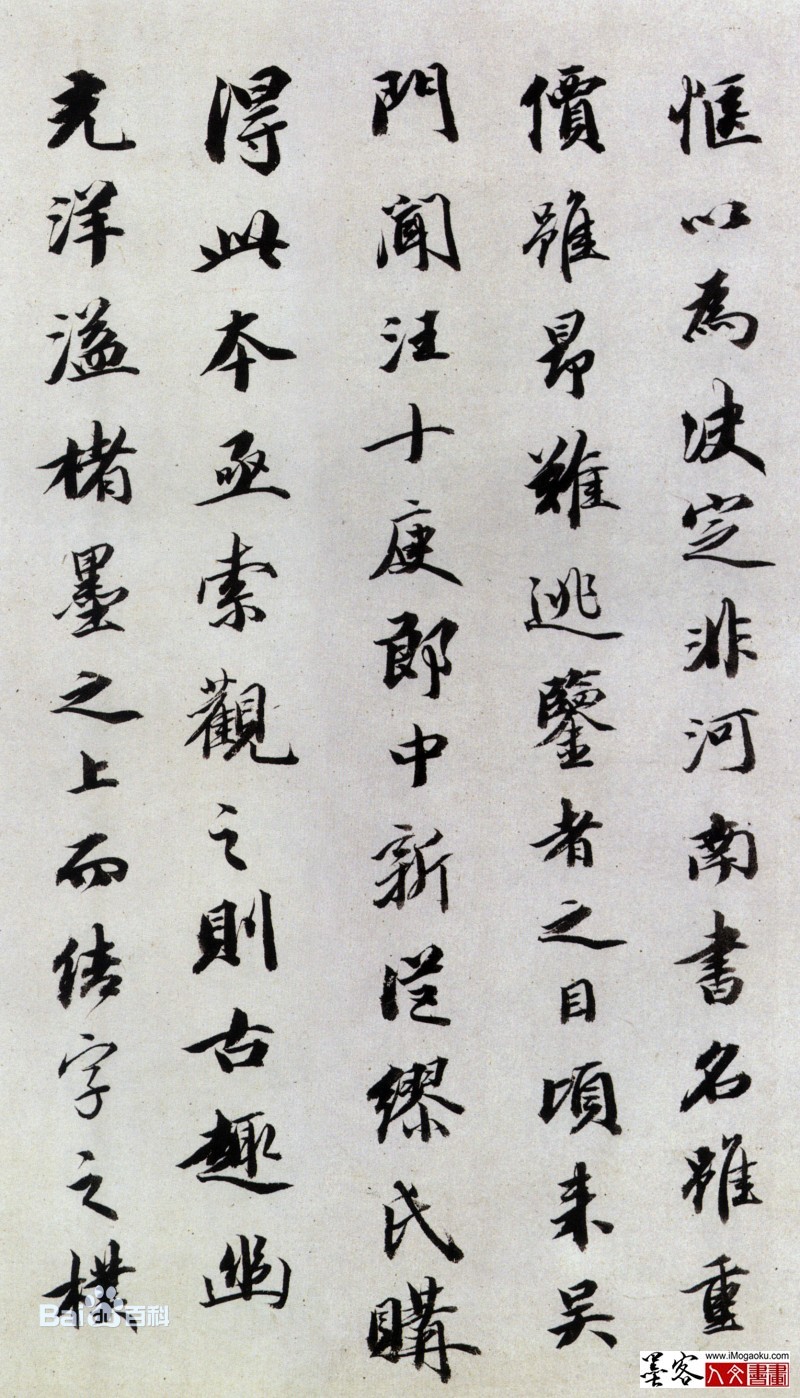 惬以為决定非河南書名雖重
價雖昂難逃鑒者之目頃来吴
門聞汪十庚郎中新從繆氏購
得此本亟索觀之則古趣幽
光洋溢楮墨之上而结字之樸
Baidu百科
www.iMogaoku.com
墨客
人文書畫